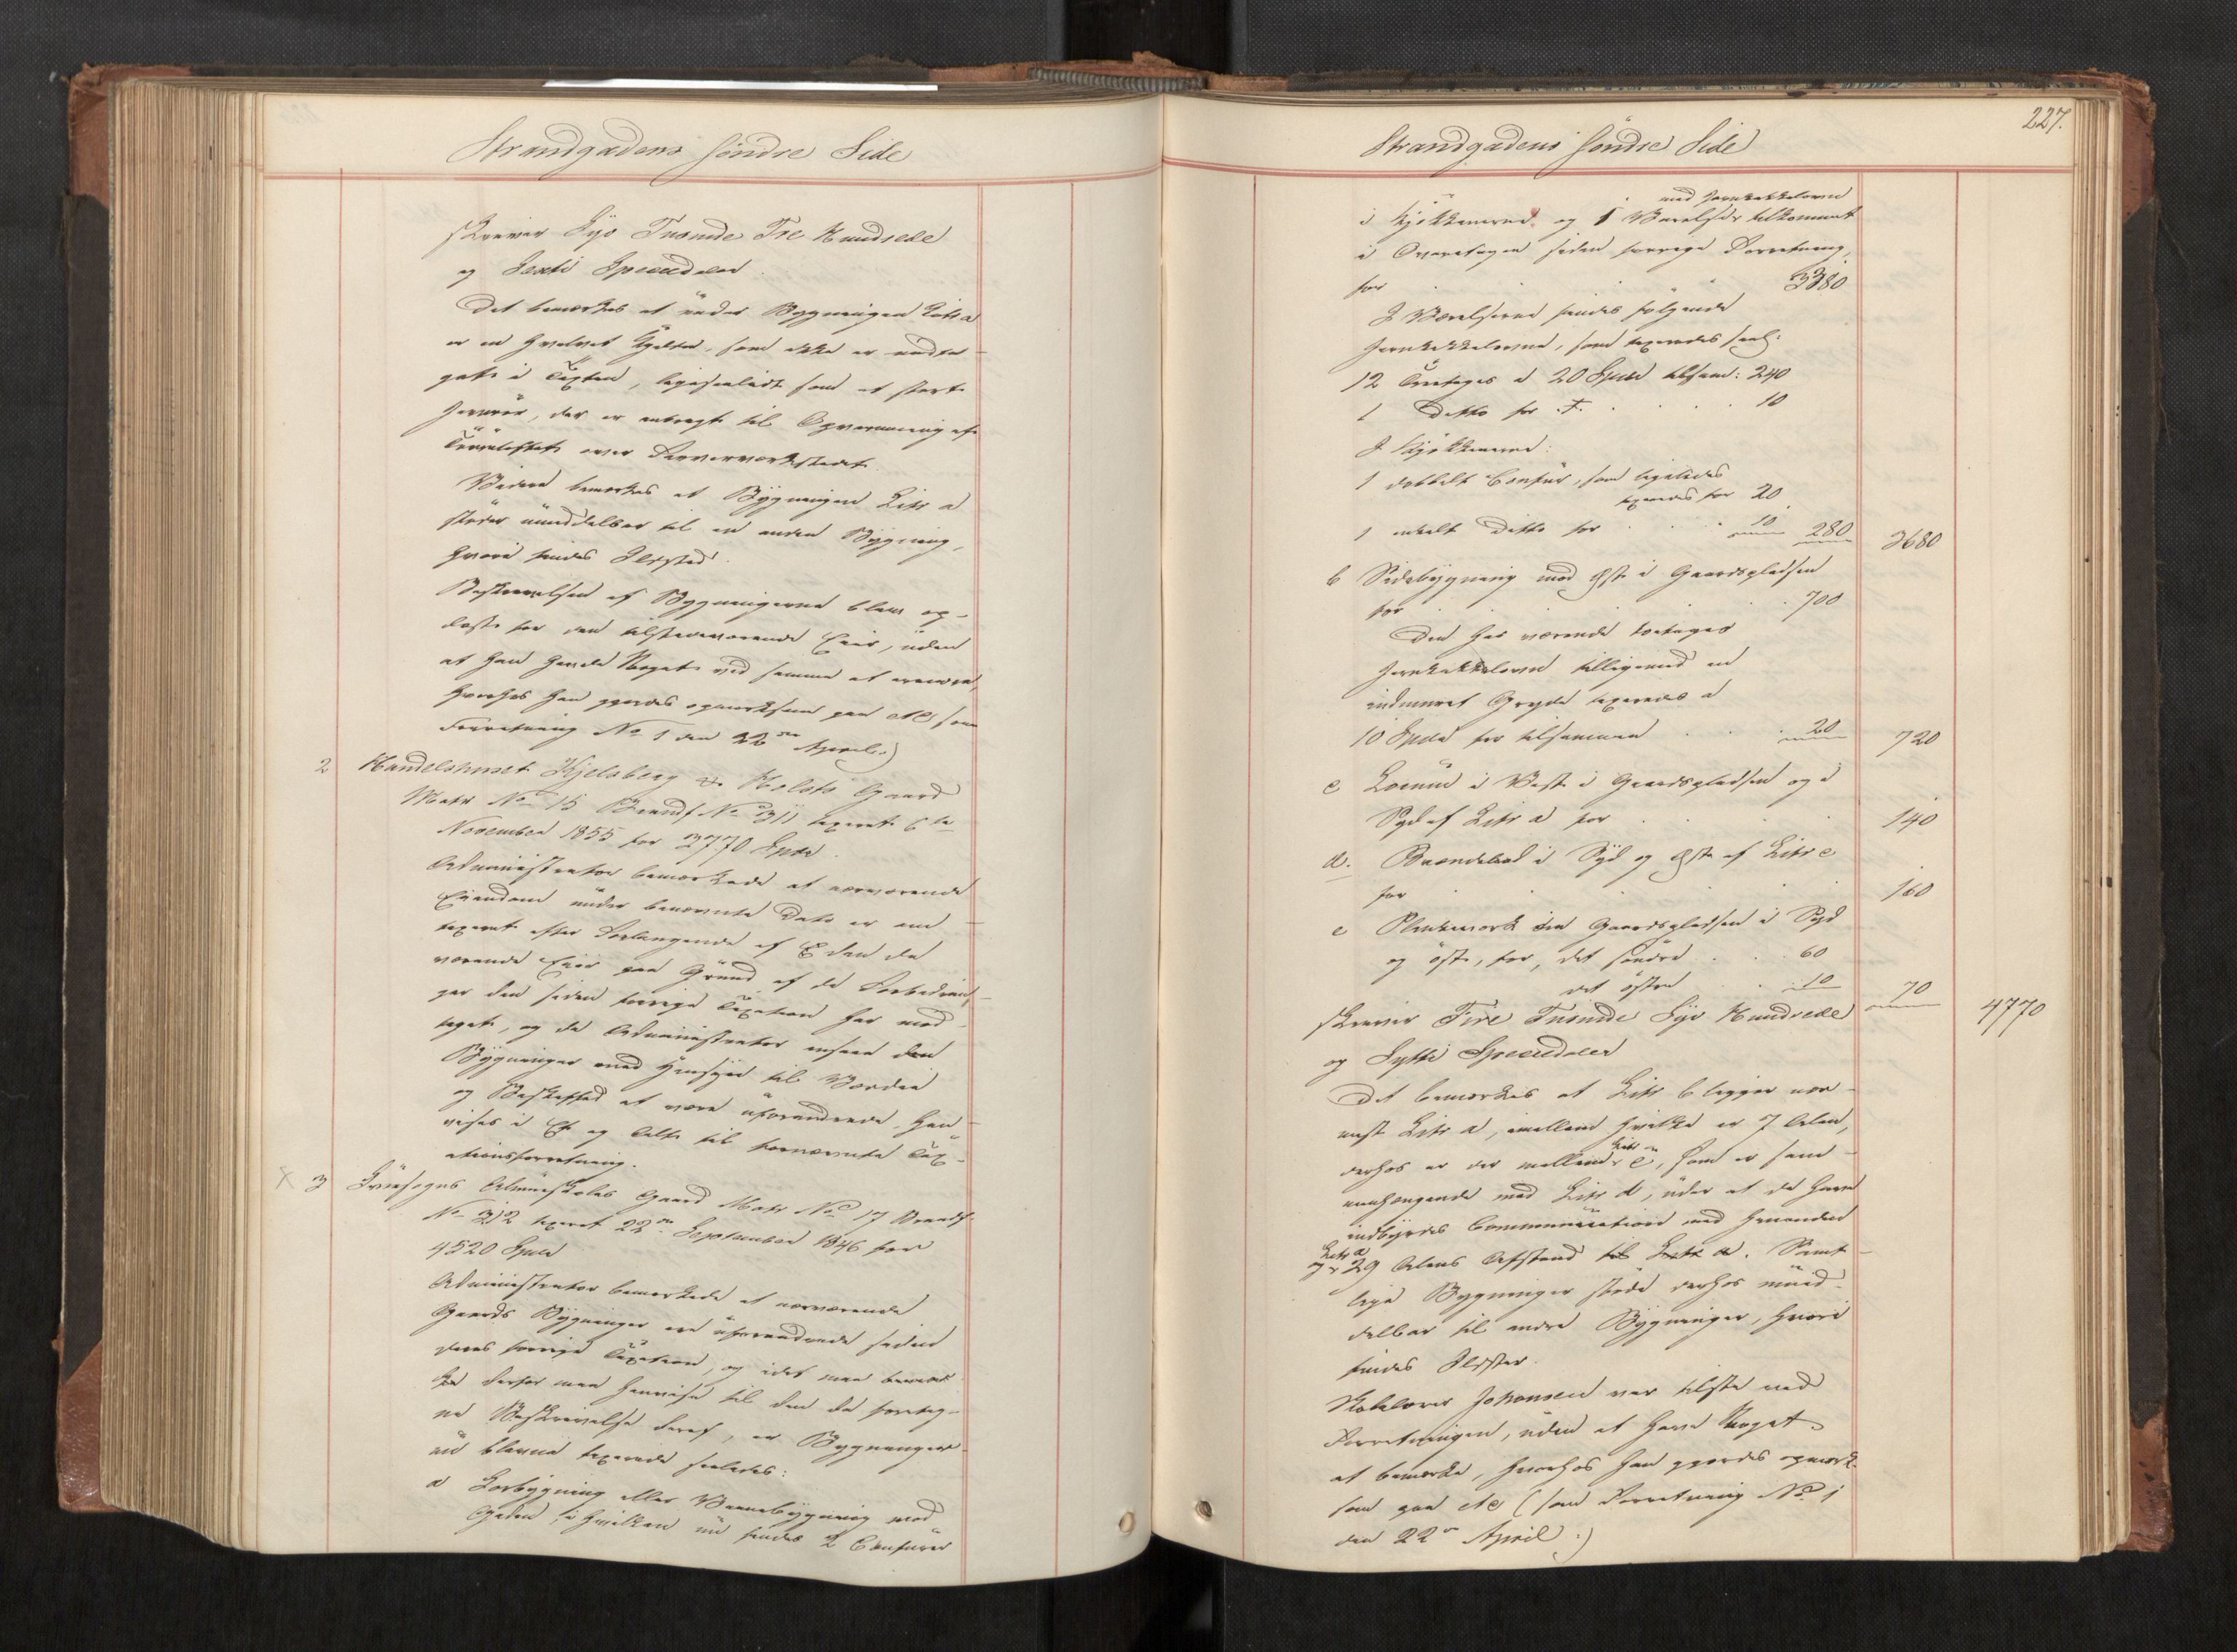 Strandgadens søndre Side
skriver Syv Tusinde Tre Hundrede
og Sexti Speciedaler.
Det bemærkes at under Bygningen Litr a
er en hvelvet Kjelder, som ikke er medta-
get i Taxten, ligesaalidt som et stort
Jernrør, der er anbragt til Opvarmning af
Tørreloftet over Farverværkstedet.
Videre bemærkes at Bygningen Litr a
støder umiddelbar til en anden Bygning,
hvori findes Ildsted.
Beskrivelsen af Bygningerne blev op-
læst for den tilstedeværende Eier, uden
at han havde Noget ved samme at erindre,
hvorhos han gjordes opmærksom paa etc (som
Forretning No 1 den 22de April.)
2 Handelshuset Kjelsberg & Holsts Gaard
Matr No 15 Brandf No 311 taxeret 6te
November 1855 for 2770 Spd.
Administrator bemærkede at nærværende
Eiendom under benævnte Dato er om-
taxeret efter Forlangende af den da
værende Eier paa Grund af de Forbedrin-
ger den siden forrige Taxation har mod-
taget, og da Administrator ansaa den
Bygninger med Hensyn til Værdie
og Beskaffenhed at være uforandrede, hen-
vises i Et og Alt til fornævnte Tax-
ationsforretning.
X 3 Frue Sogns Almueskoles Gaard Matr No 17 Brandf
No 312 taxeret 22de September 1846 for
4520 Spd
Administrator bemærkede at nærværende
Gaards Bygninger ere uforandrede siden
deres forrige Taxation, og idet man bemær-
ke derfor maa henvise til den da foretag-
ne Beskrivelse deraf, er Bygningerne
nu blevne taxerede saaledes:
a Forbygning eller Vaanebygning mod
Gaden, i hvilken nu findes 2 Comfurer
227.
Strandgadens søndre Side
med Jernkakkelovn
i Kjøkkenerne og 1 Værelse tilkommet
i Overetagen siden forrige Forretning,
for . . . 3380
I Værelserne findes følgende
Jernkakkelovne, som taxeredes saal:
12 Treetages a 20 Spd tilsam: 240
1 Ditto for . . . . 10
I Kjøkkenerne:
1 dobbelt Comfur, som ligeledes
taxeredes for 20
1 enkelt Ditto for . . . 10 280 3680
b Sidebygning mod Øst i Gaardspladsen
for . . . . . 700
Den her værende toetages
Jernkakkelovn tilligemed en
indmuret Gryde taxeredes a
10 Spd for tilsammen . . . 20 720
c Locum i Vest i Gaardspladsen og i
Syd af Litr a for . . . 140
d. Brændebod i Syd og Øst af Litr c
for . . . . . 160
e Plankeværk om Gaardspladsen i Syd
og øst, for, det søndre . . 60
det østre . . 10 70
skriver Fire Tusinde Syv Hundrede 4770
og Sytti Speciedaler
Det bemærkes at Litr b ligger nær-
mest Litr a, imellem hvilke er 7 Alen,
derhos er der mellem Litr c, som er sam-
menhængende med Litr d, uden at de have
indbyrdes Communication med hverandre
og Litr a 29 Alens Afstand til Litr a. Samt-
lige Bygninger støde derhos umid-
delbar til andre Bygninger, hvori
findes Ildsteder.
Skolelærer Johansen var tilstede ved
Forretningen, uden at have Noget
at bemærke, hvorhos han gjordes opmærk-
som paa etc (som Forretning No 1
den 22de April.)